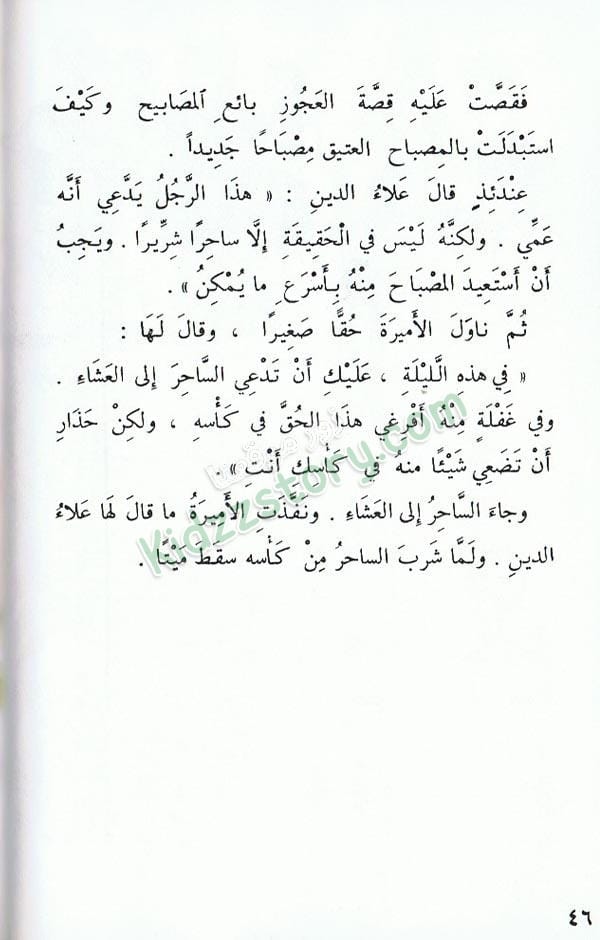 فَقَصَّتْ عَلَيْهِ قِصَّةَ العَجُوزِ بائعِ ٱلمَصَابيح وكَيْفَ
استَبْدَلَتْ بالمِصباح العتيق مِصْبَاحًا جَديداً .
عِنْدَئِذٍ قالَ علاءُ الدينِ : « هذا الرَّجُلُ يَدَّعي أَنَّه
عَمِّي . ولكِنَّهُ لَيْسَ في الْحَقيقَةِ إلَّا ساحِرًا شِرِّيرًا . ويَجِبُ
أَنْ أَسْتَعِيدَ المصْبَاحَ مِنْهُ بِأَسْرَعِ ما يُمْكِنُ » .
ثُمَّ ناوَلَ الأَميرَةَ حُقًّا صَغيرًا ، وقالَ لَهَا :
« في هذِه اللَّيْلَةِ ، عَلَيْكِ أَنْ تَدْعي السَّاحِرَ إلى العَشَاءِ .
وفي غَفْلَةٍ مِنْهُ أَفْرِغي هذَا الحُقَّ في كَأْسهِ ، ولكِنْ حَذَارِ
أَنْ تَضَعي شَيْئًا منهُ في كَأْسكِ أَنْتِ » .
وجاءَ السَّاحِرُ إلى العَشَاءِ . ونَفَّذَتِ الأَميرَةُ ما قالَ لهَا عَلاءُ
الدينِ . ولَمَّا شَربَ الساحرُ مِنْ كَأْسه سقَطَ مَيْتًا .
Kidzzstory.com
٤٦